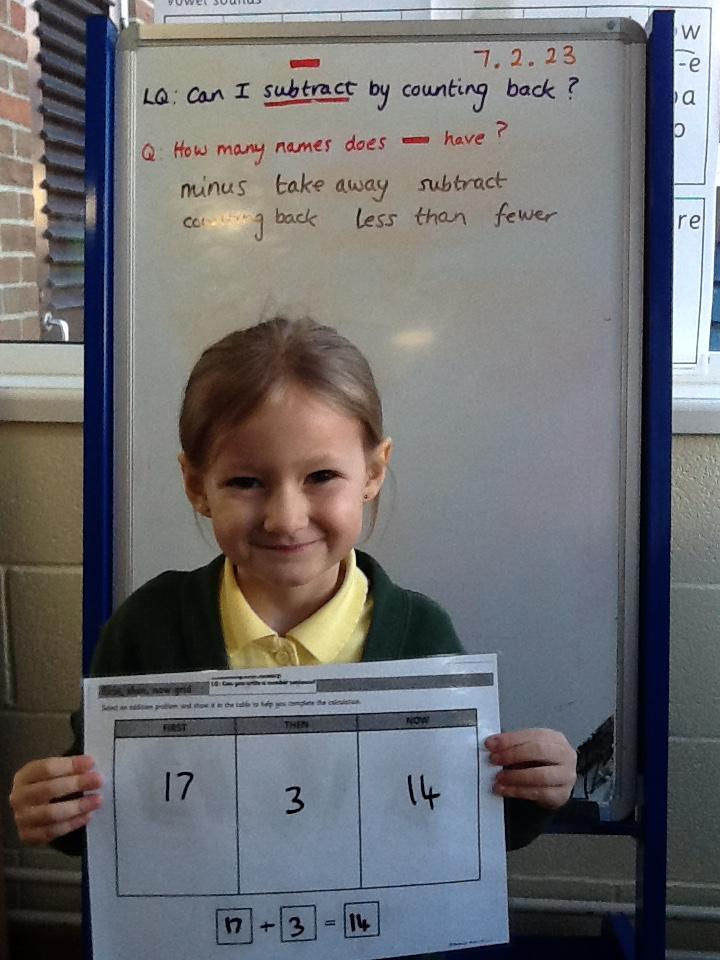 vowel sounds
7.2.23
LQ: Can I subtract by counting back?
Q: How many names does − have?
minus take away subtract
counting back less than fewer
ow
-e
re
First, then, now grid
LQ: Can you write a number sentence?
Select an addition problem and show it in the table to help you complete the calculation.
FIRST THEN NOW
17 3 14
17 + 3 = 14